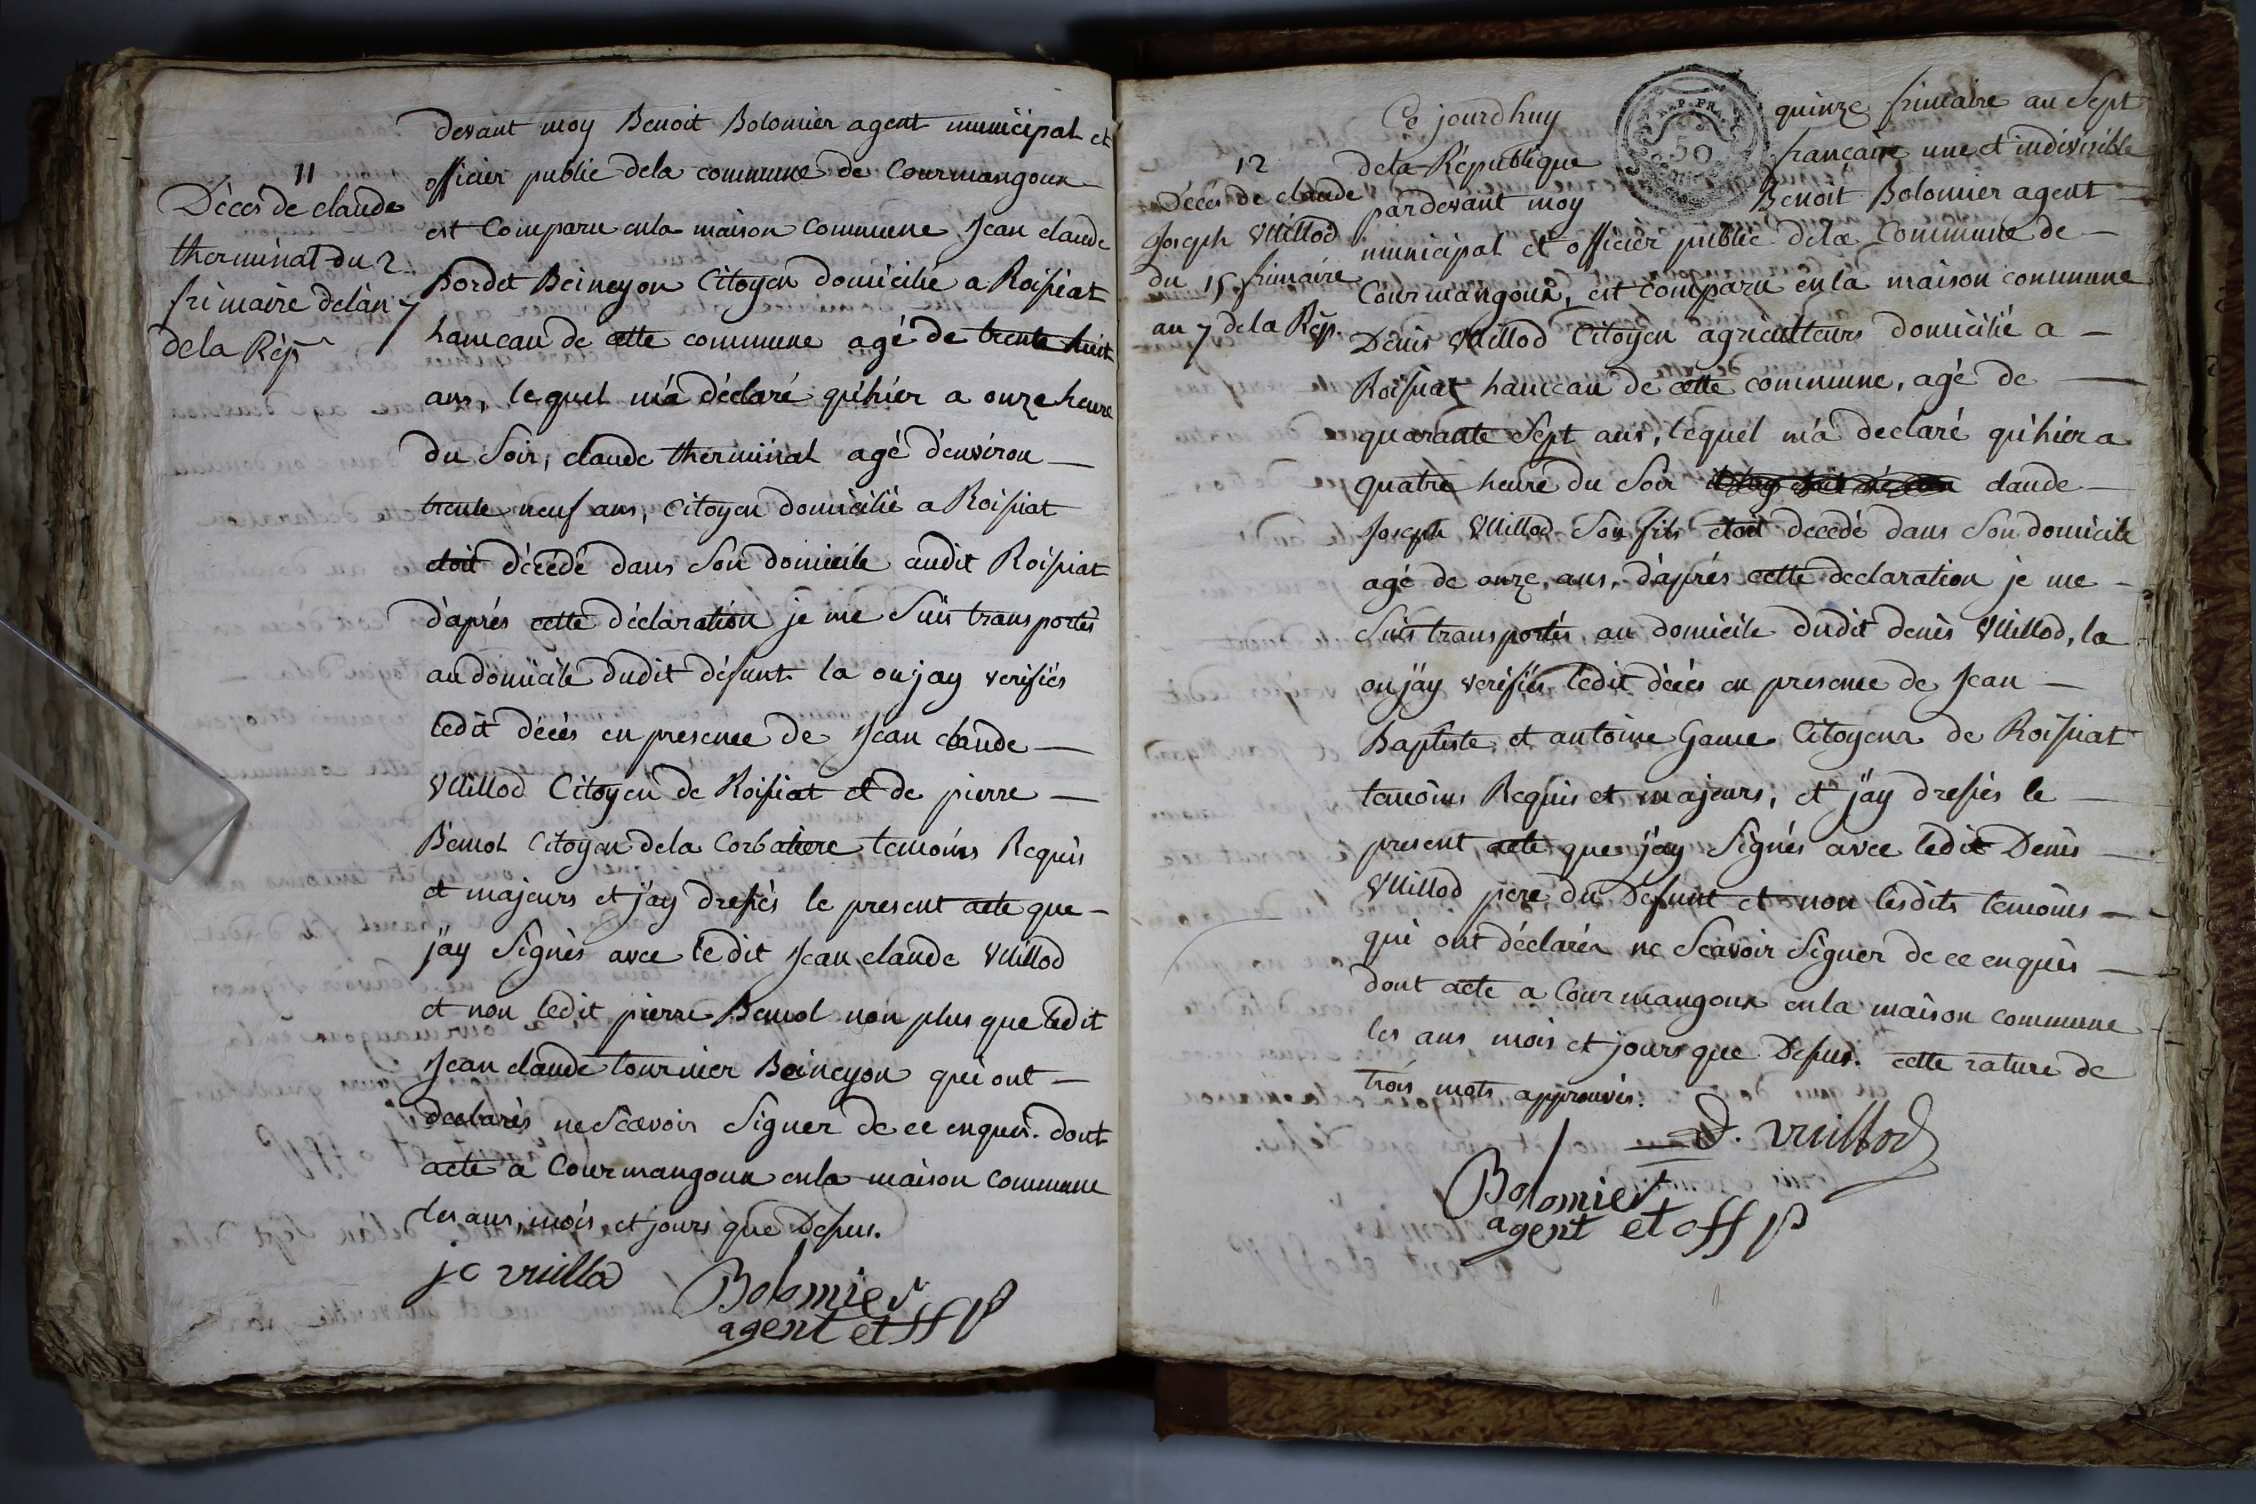 11
Décès de claude
therminal du 2
frimaire de l'an 7
de la Rép
devant moy Benoit Bolomier agent municipal et
officier public de la commune de Courmangoux
est Comparu en la maison Commune Jean claude
Bordet Beincyon Citoyen domicilié a Roissiat
hameau de cette commune agé de trente huit
ans, lequel m'a déclaré qu'hier a onze heure
du Soir, claude therminal agé d'environ
trente neuf ans, Citoyen domicilié a Roissiat
etoit décédé dans son domicile audit Roissiat
d'aprés cette déclaration je me suis transportés
au domicile dudit défunt la ou jay verifiés
ledit décés en presence de Jean claude
Vuillod Citoyen de Roissiat et de pierre
Bemol Citoyen de la Corbatiere temoins Requis
et majeurs et j'ay dressés le present acte que
j'ay Signés avec ledit Jean claude Vuillod
et non ledit pierre Bemol non plus que ledit
Jean claude tournier Beincyon qui ont
declarés ne Scavoir Signer de ce enquis. dont
acte a Courmangoux en la maison Commune
les ans, mois et jours que Dessus.
jc vuillod
Bolomier
agent et off p
12
Décés de claude
Joseph Vuillod
du 15 frimaire
an 7 de la Rép.
Ce jourd'huy quinze frimaire an Sept
de la République francaise une et indivisible
REP. FR.
50
pardevant moy Benoit Bolomier agent
municipal et officier public de la Commune de
Courmangoux, est comparu en la maison commune
Denis Vuillod Citoyen agriculteurs domicilié a
Roissiat hameau de cette commune, agé de
quarante Sept ans, lequel m'a declaré qu'hier a
quatre heure du Soir claude
Joseph Vuillod Son fils etoit decedé dans Son domicile
agé de onze ans, d'aprés cette declaration je me
Suis transportés au domicile dudit denis Vuillod, la
ou j'ay verifiés ledit décés en presence de Jean
Baptiste et antoine Game Citoyens de Roissiat
temoins Requis et majeurs, et j'ay dressés le
present acte que j'ay Signés avec ledit Denis
Vuillod pere du Defunt et non lesdits temoins
qui ont déclarés ne Scavoir Signer de ce enquis
dont acte a Courmangoux en la maison commune
les ans mois et jours que Dessus. cette rature de
trois mots approuvés.
D. vuillod
Bolomier
agent et off p